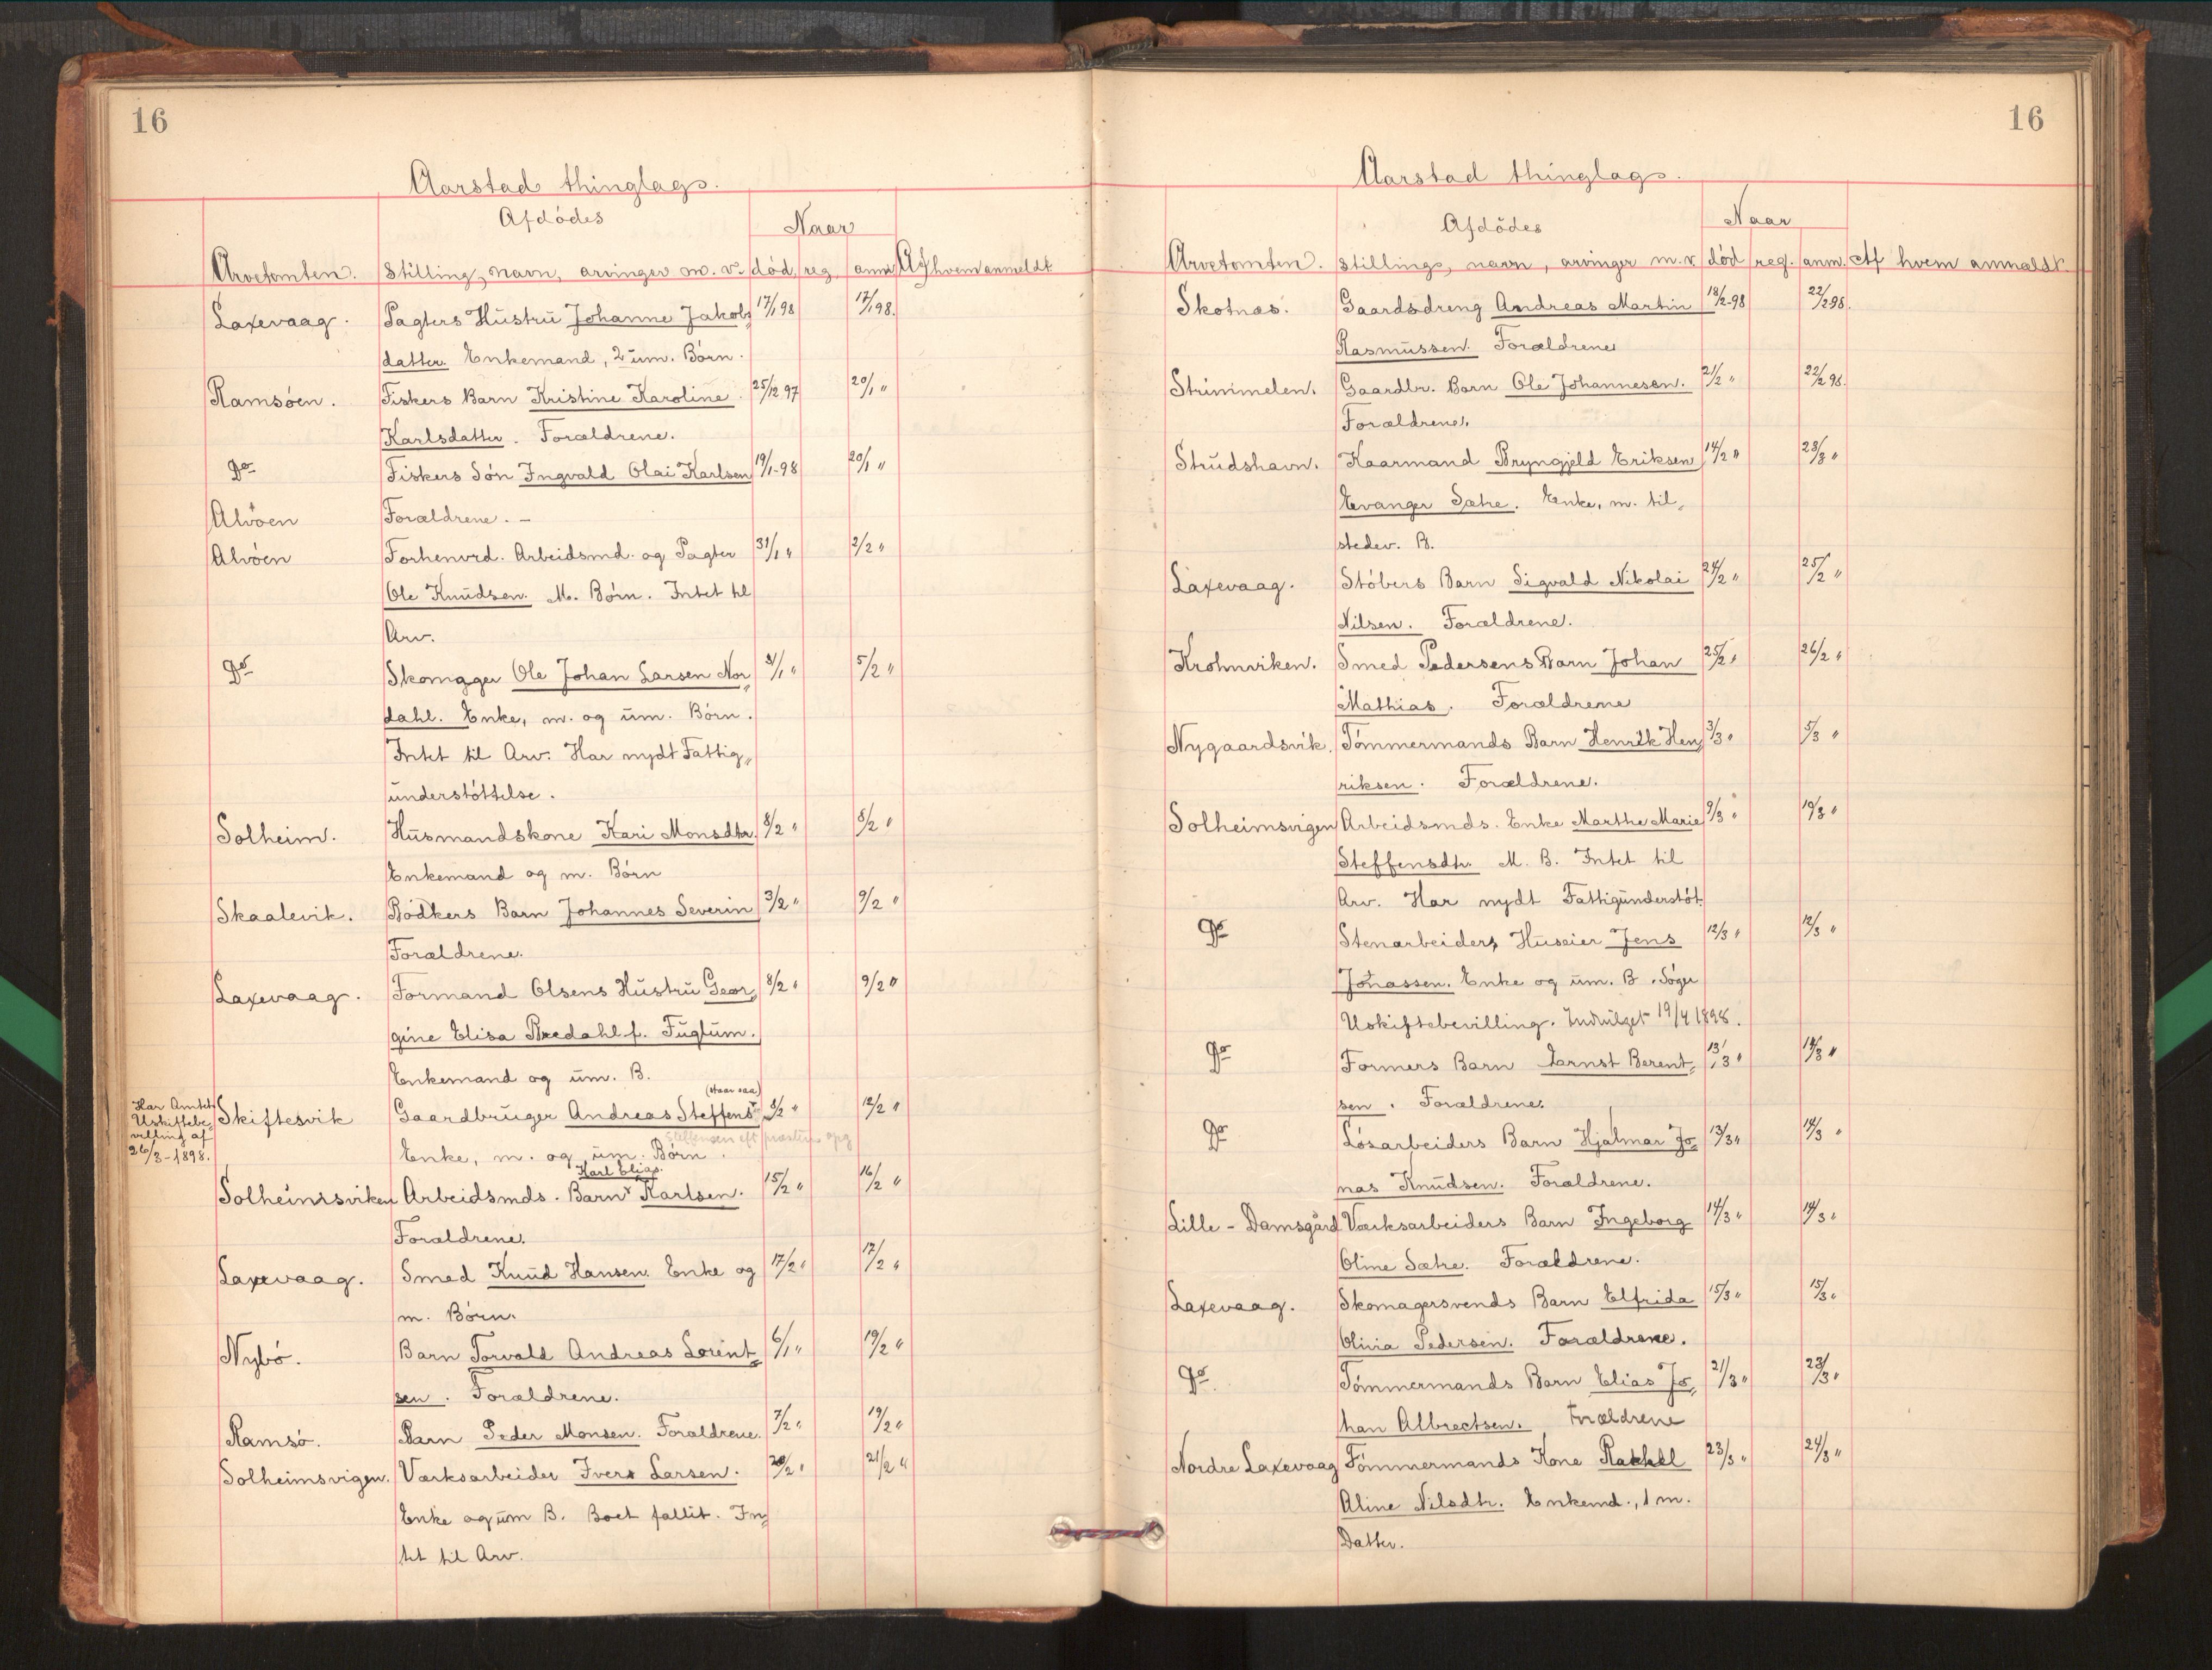 16
Aarstad thinglag.
Afdödes
Naar
Arvetomten. Stilling, navn, arvinger m. v. död, reg. anm. Af hvem anmeldt
Laxevaag. Pagters Hustru Johanne Jakobs= 17/1 98 17/1 98.
datter. Enkemand, 2 um. Börn.
Ramsöen. Fiskers Barn Kristine Karoline 25/12 97 20/1 "
Karlsdatter. Forældrene.
Do Fiskers Sön Ingvald Olai Karlsen 19/1-98 20/1 "
Alvöen Forældrene. -
Alvöen Forhenvrd. Arbeidsmd. og Pagter 31/1 " 2/2 "
Ole Knudsen. M. Börn. Intet til
Arv.
Do Skomager Ole Johan Larsen Nor= 31/1 " 5/2 "
dahl. Enke, m. og um. Börn.
Intet til Arv. Har nydt Fattig=
understöttelse.
Solheim. Husmandskone Kari Monsdtr. 8/2 " 8/2 "
Enkemand og m. Börn
Skaalevik. Bödkers Barn Johannes Severin 3/2 " 9/2 "
Forældrene.
Laxevaag. Formand Olsens Hustru Geor= 8/2 " 9/2 "
gine Elisa Bredahl f. Fuglum.
Enkemand og um. B.
Har Amtets
Uskiftebe=
villing af
26/3-1898.
Skiftesvik Gaardbruger Andreas Steffens 8/2 " 12/2 "
Steffensen eft præstens opg
Enke, m. og um. Börn.
Karl Elias
Solheimsviken Arbeidsmds. Barn Karlsen. 15/2 " 16/2 "
Forældrene.
Laxevaag. Smed Knud Hansen. Enke og 17/2 " 17/2 "
m. Börn.
Nybö. Barn Torvald Andreas Lorent= 6/1 " 19/2 "
sen. Forældrene.
Ramsö. Barn Peder Monsen. Forældrene. 7/2 " 19/2 "
Solheimsvigen. Værksarbeider Iver Larsen. 20/2 " 21/2 "
Enke og um B. Boet fallit. In=
tet til Arv.
16
Aarstad thinglag.
Afdödes
Naar
Arvetomten. Stilling, navn, arvinger m. v. död reg. anm. Af hvem anmældt.
Skotnæs. Gaardsdreng Andreas Martin 18/2-98 22/2 98.
Rasmussen. Forældrene
Strimmelen. Gaardbr. Barn Ole Johannesen. 21/2 " 22/2 98.
Forældrene.
Strudshavn. Kaarmand Bryngjeld Eriksen 14/2 " 23/3 "
Evanger Sætre. Enke, m. til=
stedev. B.
Laxevaag. Stöbers Barn Sigvald Nikolai 24/2 " 25/2 "
Nilsen. Forældrene.
Krohnviken. Smed Pedersens Barn Johan 25/2 " 26/2 "
Mathias. Forældrene
Nygaardsvik. Tömmermands Barn Henrik Hen= 3/3 " 5/3 "
riksen. Forældrene.
Solheimsvigen Arbeidsmds. Enke Marthe Marie 9/3 " 10/3 "
Steffensdtr. M. B. Intet til
Arv. Har nydt Fattigunderstöt.
Do Stenarbeider, Huseier Jens 12/3 " 12/3 "
Jonassen. Enke og um. B. Söger
Uskiftebevilling. Indvilget 19/4 1898.
Do Formers Barn Ernst Berent= 13/3 " 14/3 "
sen. Forældrene.
Do Lösarbeiders Barn Hjalmar Jo= 13/3 " 14/3 "
nas Knudsen. Forældrene.
Lille-Damsgård Værksarbeiders Barn Ingeborg 14/3 " 14/3 "
Oline Sætre. Forældrene.
Laxevaag. Skomagersvends Barn Elfrida 15/3 " 15/3 "
Olivia Pedersen. Forældrene.
Do. Tömmermands Barn Elias Jo= 21/3 " 23/3 "
han Albrectsen. Forældrene
Nordre Laxevaag Tömmermands Kone Rakkel 23/3 " 24/3 "
Aline Nilsdtr. Enkemd., 1 m.
Datter.